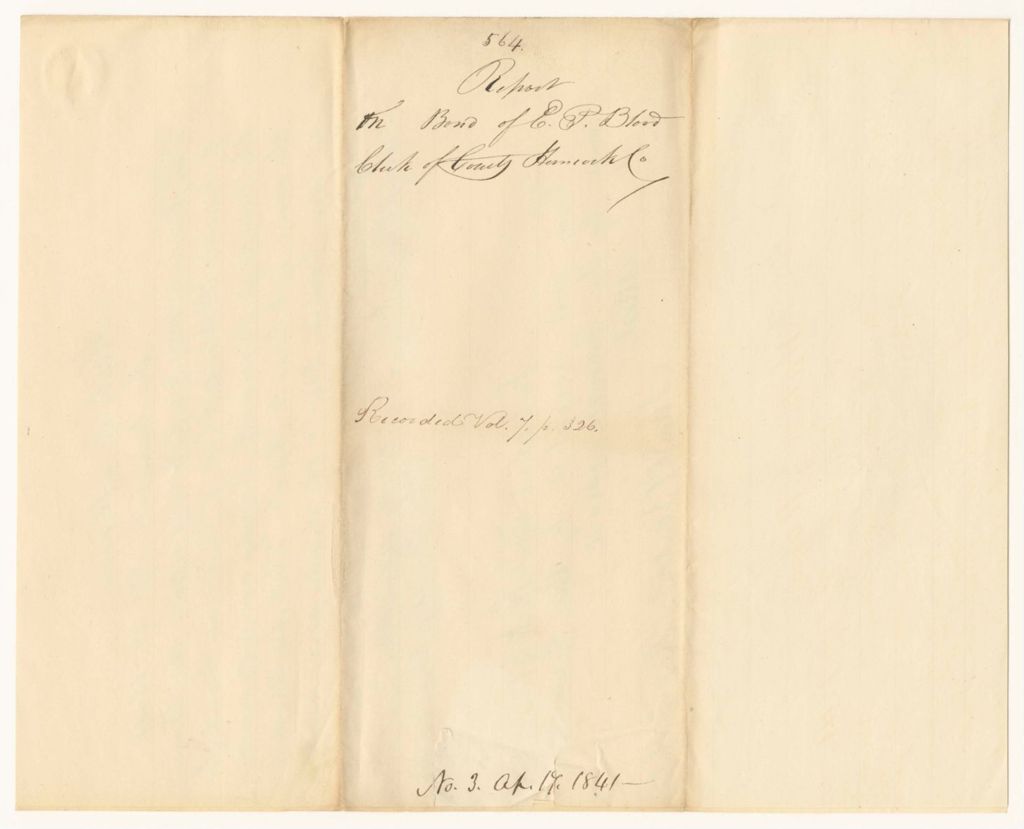 564.
Report
On Bond of E. P. Blood
Clerk of Courts Hancock Co
Recorded Vol. 7. p. 326.
No. 3. Ap. 17. 1841—